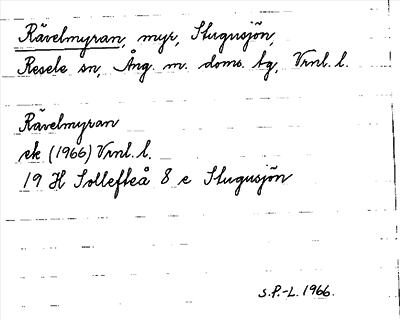 Rävelmyran, myr, Stugusjön,
Resele sn, Ång. m. doms. tg, Vrnl. l.
Rävelmyran
ek (1966) Vrnl. l.
19 H Sollefteå 8 e Stugusjön
S.P.-L. 1966.